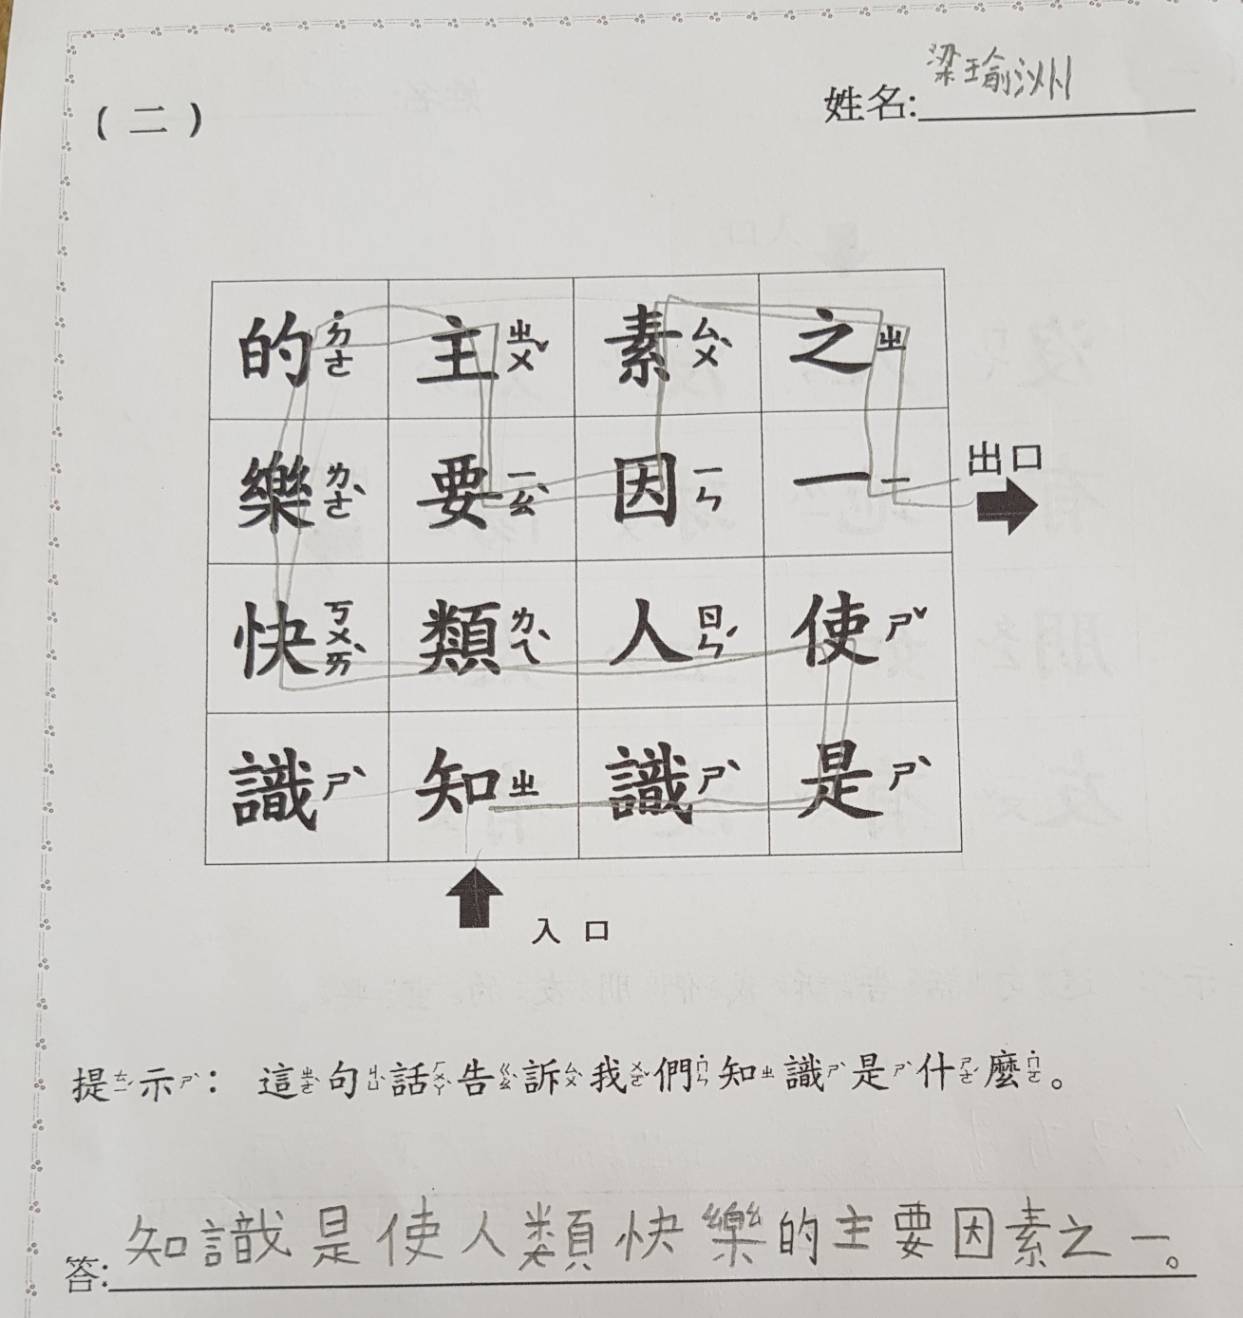 (二)
姓名:梁瑜洲
的ㄉㄜ˙ 主ㄓㄨˇ 素ㄙㄨˋ 之ㄓ
樂ㄌㄜˋ 要ㄧㄠˋ 因ㄧㄣ 一ㄧ
出口
快ㄎㄨㄞˋ 類ㄌㄟˋ 人ㄖㄣˊ 使ㄕˇ
識ㄕˋ 知ㄓ 識ㄕˋ 是ㄕˋ
入口
提ㄊㄧˊ示ㄕˋ:這ㄓㄜˋ句ㄐㄩˋ話ㄏㄨㄚˋ告ㄍㄠˋ訴ㄙㄨˋ我ㄨㄛˇ們ㄇㄣ˙知ㄓ識ㄕˋ是ㄕˋ什ㄕㄜˊ麼ㄇㄜ˙。
答:知識是使人類快樂的主要因素之一。